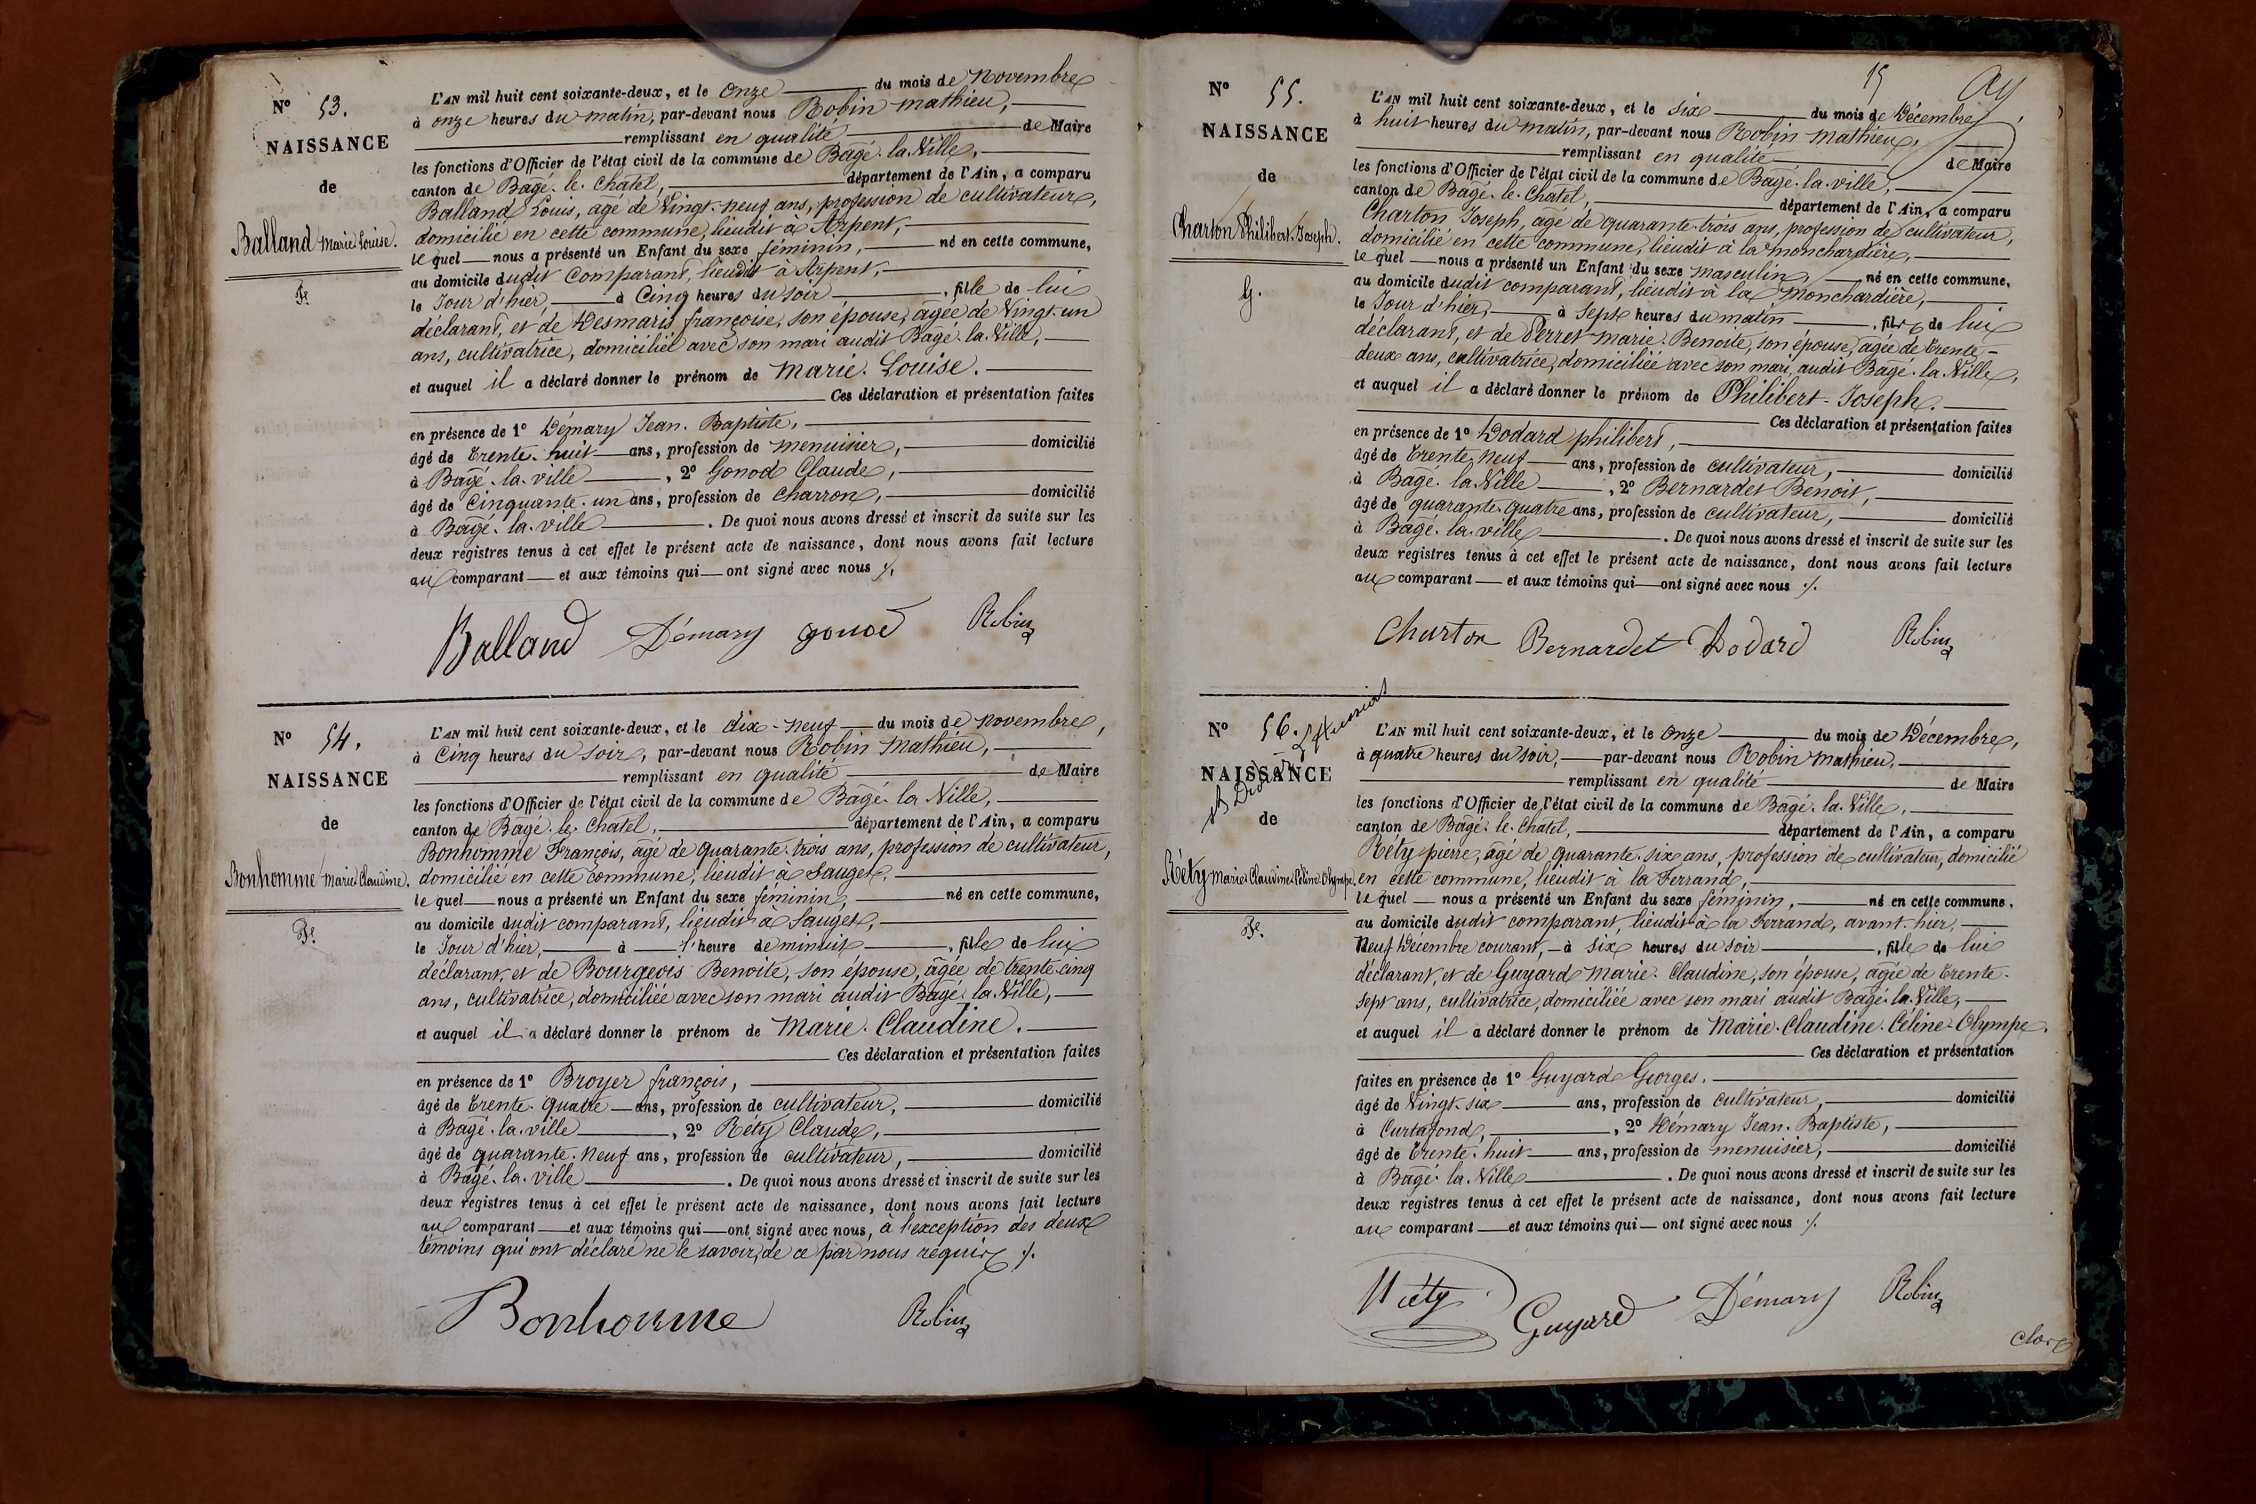 N° 53.
NAISSANCE
de
Balland Marie Louise.
Fe.
L'AN mil huit cent soixante-deux, et le onze du mois de Novembre
à onze heures du matin, par-devant nous Robin Mathieu,
remplissant en qualité de Maire
les fonctions d'Officier de l'état civil de la commune de Bagé-la-Ville,
canton de Bagé-le-Chatel, département de l'Ain, a comparu
Balland Louis, agé de Vingt-neuf ans, profession de cultivateur,
domicilié en cette commune, lieudit à Arpent,
le quel nous a présenté un Enfant du sexe féminin, né en cette commune,
au domicile dudit Comparant, lieudit à Arpent,
le Jour d'hier, à Cinq heures du soir, fille de lui
déclarant, et de Desmaris françoise, son épouse, agée de Vingt-un
ans, cultivatrice, domiciliée avec son mari audit Bagé-la-Ville,
et auquel il a déclaré donner le prénom de Marie-Louise.
Ces déclaration et présentation faites
en présence de 1° Démary Jean-Baptiste,
âgé de trente-huit ans, profession de menuisier, domicilié
à Bagé-la-ville, 2° Gonod Claude,
âgé de Cinquante-un ans, profession de charron, domicilié
à Bagé-la-ville. De quoi nous avons dressé et inscrit de suite sur les
deux registres tenus à cet effet le présent acte de naissance, dont nous avons fait lecture
au comparant et aux témoins qui ont signé avec nous ./.
Balland Démary gonod Robin
N° 54.
NAISSANCE
de
Bonhomme Marie Claudine.
Fe.
L'AN mil huit cent soixante-deux, et le dix-neuf du mois de Novembre,
à Cinq heures du soir, par-devant nous Robin Mathieu,
remplissant en qualité de Maire
les fonctions d'Officier de l'état civil de la commune de Bagé-la-Ville,
canton de Bagé-le-Chatel, département de l'Ain, a comparu
Bonhomme François, agé de quarante-trois ans, profession de cultivateur,
domicilié en cette commune, lieudit à Sauget,
le quel nous a présenté un Enfant du sexe féminin, né en cette commune,
au domicile dudit comparant, lieudit à Sauget,
le Jour d'hier, à l'heure de minuit, fille de lui
déclarant, et de Bourgeois Benoite, son épouse, agée de trente-cinq
ans, cultivatrice, domiciliée avec son mari audit Bagé-la-Ville,
et auquel il a déclaré donner le prénom de Marie-Claudine.
Ces déclaration et présentation faites
en présence de 1° Broyer françois,
âgé de trente-quatre ans, profession de cultivateur, domicilié
à Bagé-la-ville, 2° Réty Claude,
âgé de quarante-neuf ans, profession de cultivateur, domicilié
à Bagé-la-ville. De quoi nous avons dressé et inscrit de suite sur les
deux registres tenus à cet effet le présent acte de naissance, dont nous avons fait lecture
au comparant et aux témoins qui ont signé avec nous, à l'exception des deux
témoins qui ont déclaré ne le savoir, de ce par nous requis ./.
Bonhomme Robin
15
N° 55.
NAISSANCE
de
Charton Philibert-Joseph.
G.
L'AN mil huit cent soixante-deux, et le six du mois de Décembre,
à huit heures du matin, par-devant nous Robin Mathieu,
remplissant en qualité de Maire
les fonctions d'Officier de l'état civil de la commune de Bagé-la-ville,
canton de Bagé-le-Chatel, département de l'Ain, a comparu
Charton Joseph, agé de quarante-trois ans, profession de cultivateur,
domicilié en cette commune, lieudit à la Monchardière,
le quel nous a présenté un Enfant du sexe masculin, né en cette commune,
au domicile dudit comparant, lieudit à la Monchardière,
le Jour d'hier, à Sept heures du matin, fils de lui
déclarant, et de Perret Marie-Benoite, son épouse, agée de trente-
deux ans, cultivatrice, domiciliée avec son mari, audit Bagé-la-Ville,
et auquel il a déclaré donner le prénom de Philibert-Joseph.
Ces déclaration et présentation faites
en présence de 1° Dodard philibert,
âgé de trente-neuf ans, profession de cultivateur, domicilié
à Bagé-la-Ville, 2° Bernardet Benoit,
âgé de quarante-quatre ans, profession de cultivateur, domicilié
à Bagé-la-ville. De quoi nous avons dressé et inscrit de suite sur les
deux registres tenus à cet effet le présent acte de naissance, dont nous avons fait lecture
au comparant et aux témoins qui ont signé avec nous ./.
Charton Bernardet Dodard Robin
N° 56.
NAISSANCE
de
Réty Marie-Claudine-Céline-Olympe.
Fe.
L'AN mil huit cent soixante-deux, et le onze du mois de Décembre,
à quatre heures du soir, par-devant nous Robin Mathieu,
remplissant en qualité de Maire
les fonctions d'Officier de l'état civil de la commune de Bagé-la-Ville,
canton de Bagé-le-Chatel, département de l'Ain, a comparu
Réty pierre, agé de quarante-six ans, profession de cultivateur, domicilié
en cette commune, lieudit à la Ferrand,
le quel nous a présenté un Enfant du sexe féminin, né en cette commune,
au domicile dudit comparant, lieudit à la Ferrand, avant-hier,
Neuf Décembre courant, à six heures du soir, fille de lui
déclarant, et de Guyard Marie-Claudine, son épouse, agée de trente-
sept ans, cultivatrice, domiciliée avec son mari audit Bagé-la-Ville,
et auquel il a déclaré donner le prénom de Marie-Claudine-Céline-Olympe.
Ces déclaration et présentation
faites en présence de 1° Guyard Georges,
âgé de Vingt-six ans, profession de cultivateur, domicilié
à Curtafond, 2° Démary Jean-Baptiste,
âgé de trente-huit ans, profession de menuisier, domicilié
à Bagé-la-Ville. De quoi nous avons dressé et inscrit de suite sur les
deux registres tenus à cet effet le présent acte de naissance, dont nous avons fait lecture
au comparant et aux témoins qui ont signé avec nous ./.
Réty Guyard Démary Robin